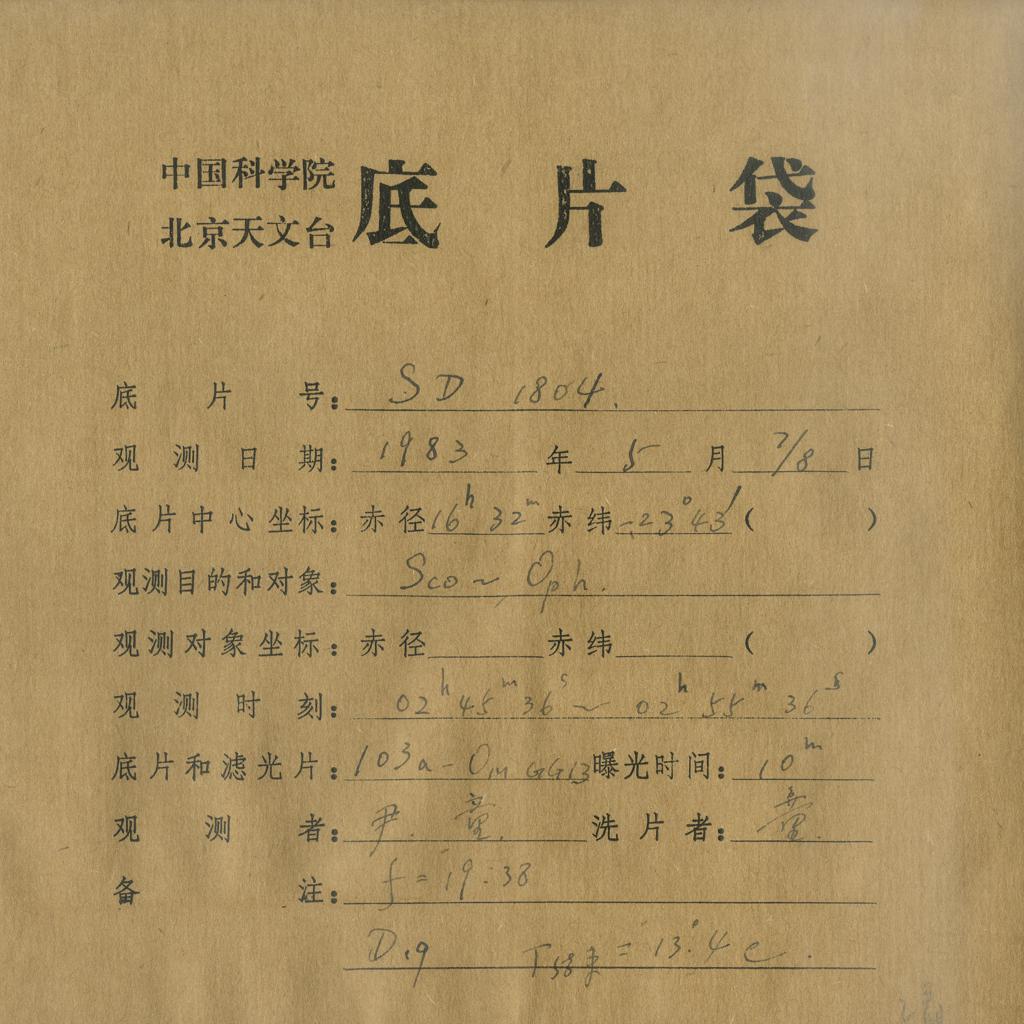 中国科学院
北京天文台 底片袋
底片号: SD 1804.
观测日期: 1983 年 5 月 7/8 日
底片中心坐标: 赤径 16h 32m 赤纬 -23°43′ ( )
观测目的和对象: Sco ~ Oph.
观测对象坐标: 赤径 赤纬 ( )
观测时刻: 02h 45m 36s ~ 02h 55m 36s
底片和滤光片: 103a-O GG13 曝光时间: 10m
观测者: 尹. 童. 洗片者: 童.
备注: f = 19.38
D.19 = 13°.4 C.